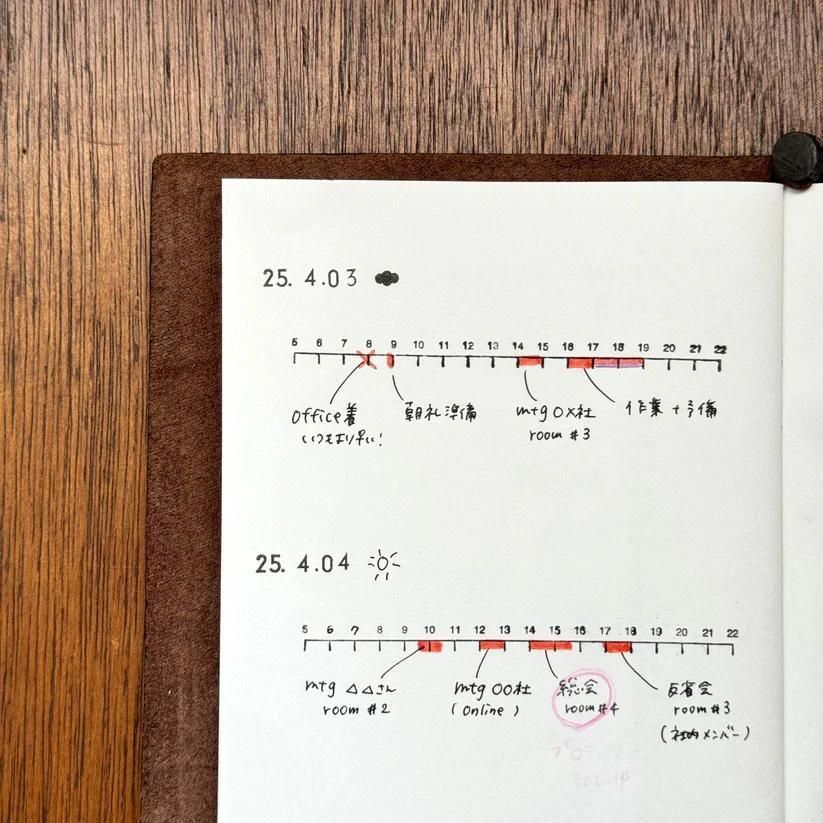 25. 4.03
5 6 7 8 9 10 11 12 13 14 15 16 17 18 19 20 21 22
office着
いつもより早い!
朝礼準備
mtg O×社
room #3
作業 + 予備
25. 4.04
5 6 7 8 9 10 11 12 13 14 15 16 17 18 19 20 21 22
mtg △△さん
room #2
mtg OO社
(Online)
総会
room #4
反省会
room #3
(社内メンバー)
set up